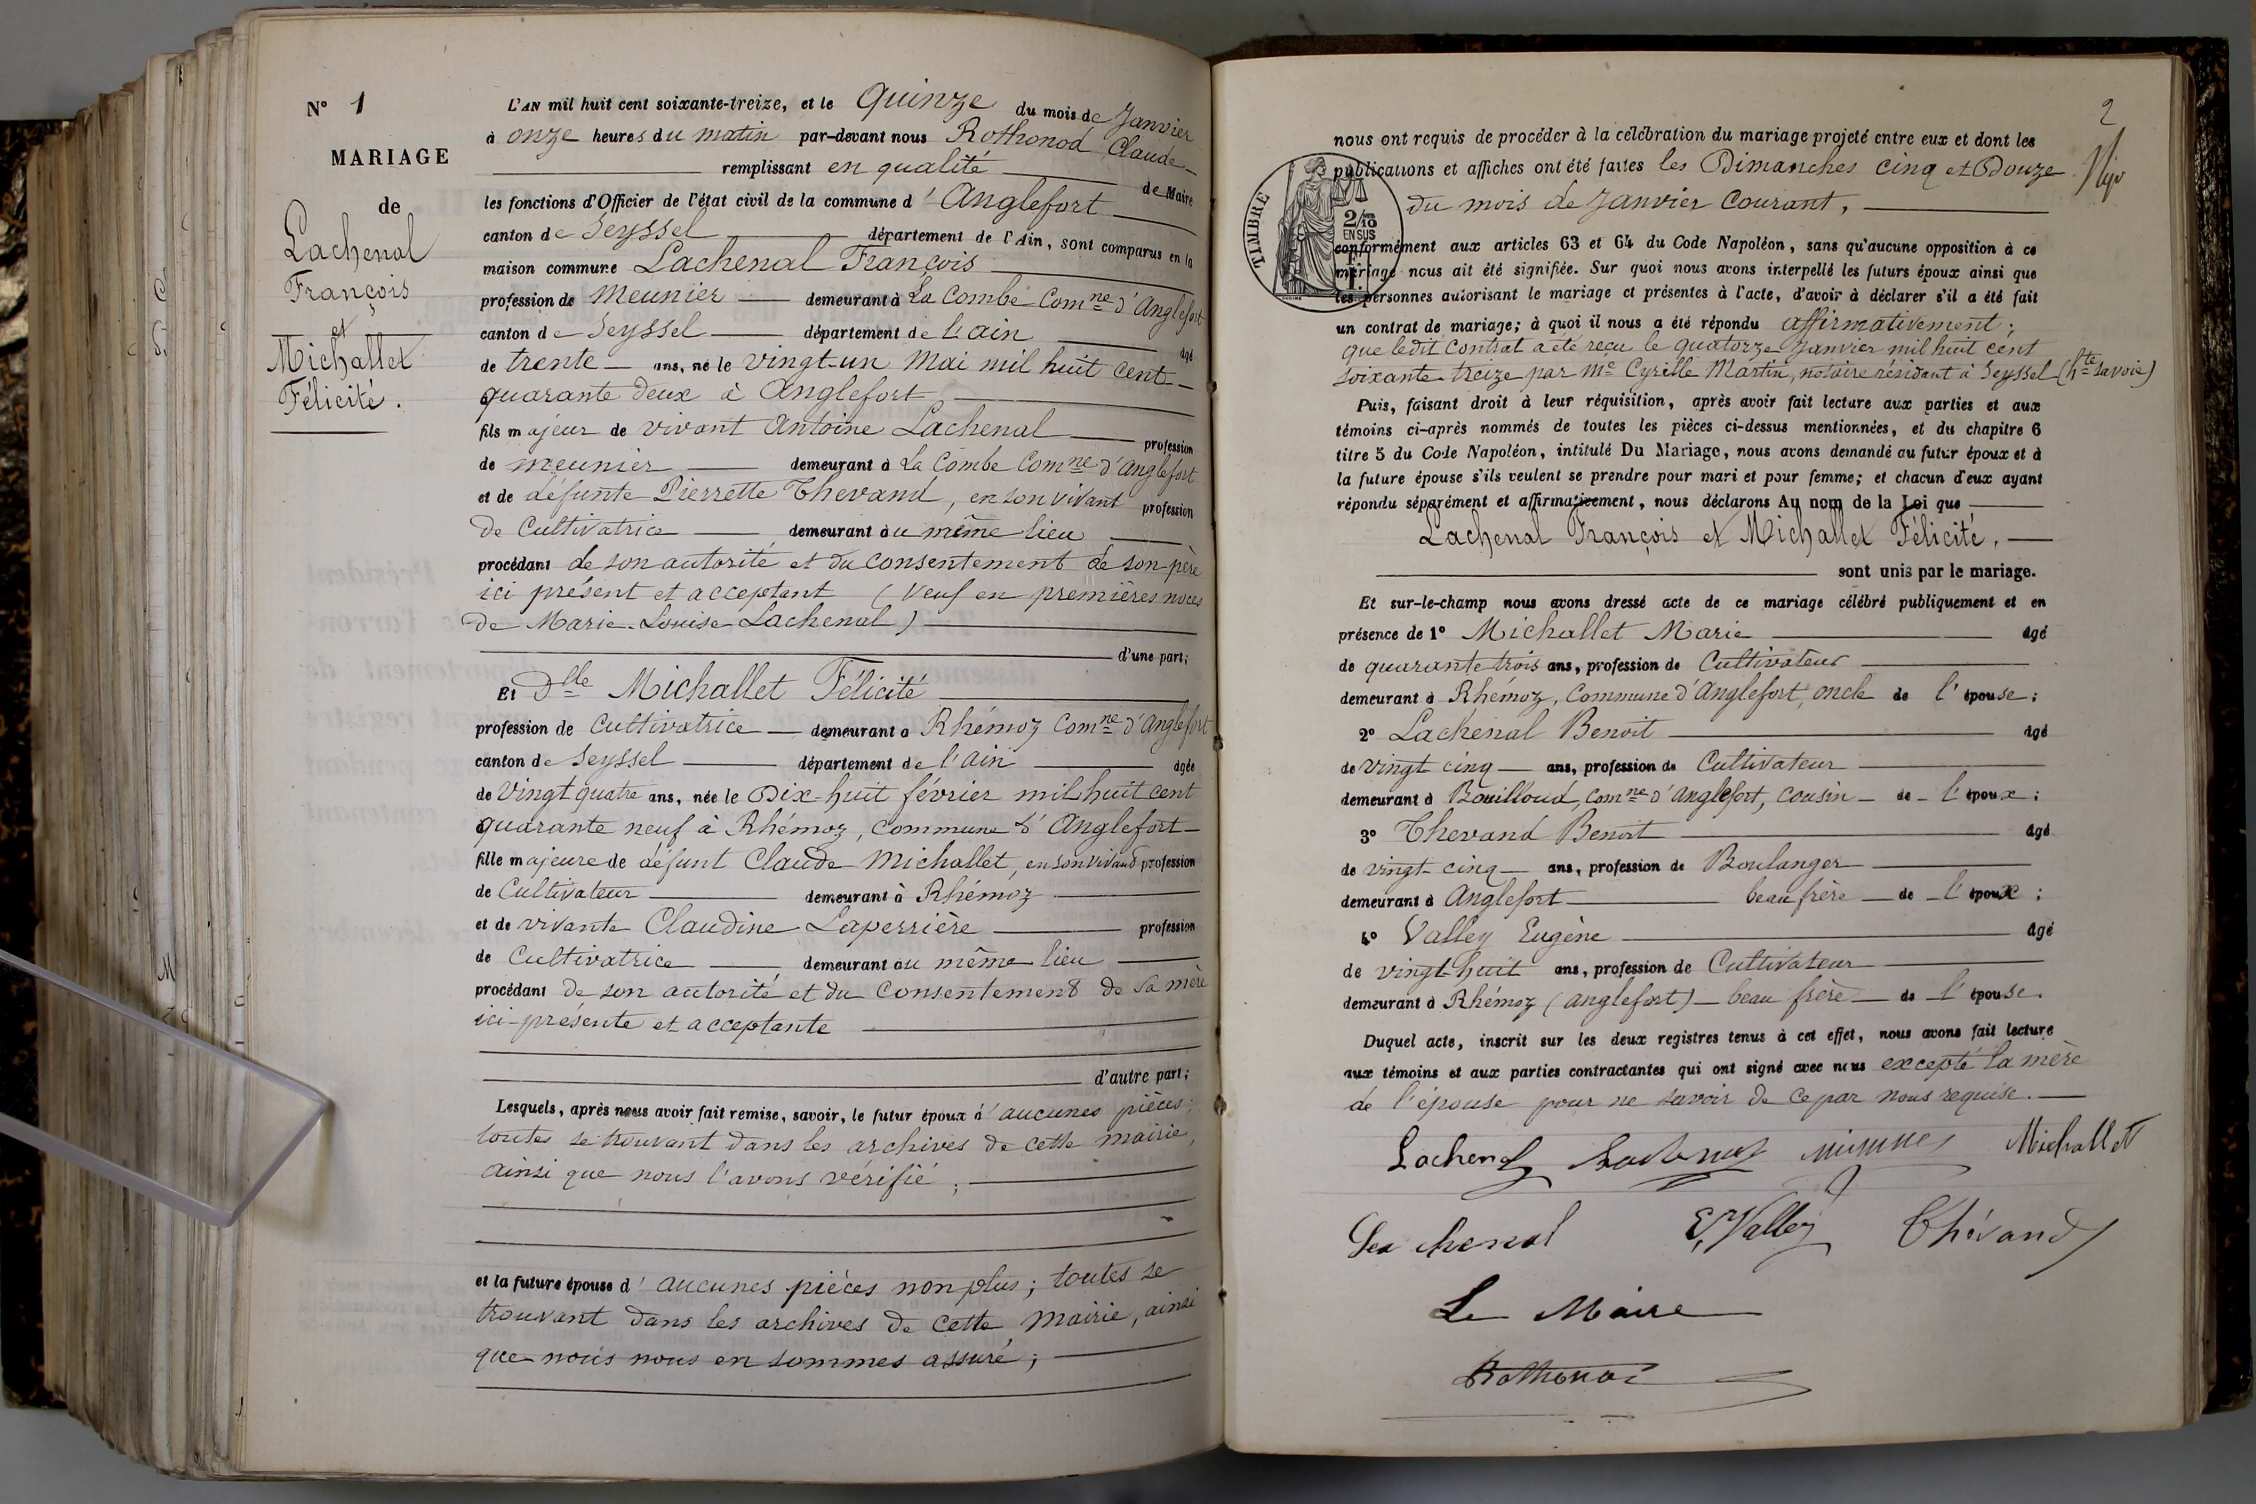 N° 1
MARIAGE
de
Lachenal
François
et
Michallet
Félicité.
L'AN mil huit cent soixante-treize, et le Quinze du mois de Janvier
à onze heures du matin par-devant nous Rothonod Claude
remplissant en qualité de Maire
les fonctions d'Officier de l'état civil de la commune d'Anglefort
canton de Seyssel département de l'Ain, sont comparus en la
maison commune Lachenal François
profession de meunier demeurant à La Combe Comne d'Anglefort
canton de Seyssel département de l'ain âgé
de trente ans, né le vingt-un Mai mil huit cent
quarante deux à Anglefort
fils majeur de vivant Antoine Lachenal profession
de meunier demeurant à La Combe Comne d'Anglefort
et de défunte Pierrette Thevand, en son vivant profession
de Cultivatrice demeurant au même lieu
procédant de son autorité et du consentement de son père
ici présent et acceptant (Veuf en premières noces
de Marie-Louise Lachenal)
d'une part;
Et Dlle Michallet Félicité
profession de Cultivatrice demeurant à Rhémoz Comne d'Anglefort
canton de Seyssel département de l'ain âgée
de Vingt quatre ans, née le Dix-huit février mil huit cent
quarante neuf à Rhémoz, commune d'Anglefort
fille majeure de défunt Claude Michallet, en son vivant profession
de Cultivateur demeurant à Rhémoz
et de vivante Claudine Laperrière profession
de Cultivatrice demeurant au même lieu
procédant de son autorité et du consentement de sa mère
ici présente et acceptante
d'autre part;
Lesquels, après nous avoir fait remise, savoir, le futur époux d'aucunes pièces;
toutes se trouvant dans les archives de cette mairie,
ainsi que nous l'avons vérifié;
et la future épouse d'aucunes pièces non plus; toutes se
trouvant dans les archives de cette mairie, ainsi
que nous nous en sommes assuré;
2
nous ont requis de procéder à la célébration du mariage projeté entre eux et dont les
publications et affiches ont été faites les Dimanches cinq et Douze
du mois de Janvier Courant,
TIMBRE
2/10
EN SUS
conformément aux articles 63 et 64 du Code Napoléon, sans qu'aucune opposition à ce
mariage nous ait été signifiée. Sur quoi nous avons interpellé les futurs époux ainsi que
les personnes autorisant le mariage et présentes à l'acte, d'avoir à déclarer s'il a été fait
un contrat de mariage; à quoi il nous a été répondu affirmativement;
que ledit contrat a été reçu le quatorze Janvier mil huit cent
soixante-treize par Me Cyrille Martin, notaire résidant à Seyssel (hte Savoie)
Puis, faisant droit à leur réquisition, après avoir fait lecture aux parties et aux
témoins ci-après nommés de toutes les pièces ci-dessus mentionnées, et du chapitre 6
titre 5 du Code Napoléon, intitulé Du Mariage, nous avons demandé au futur époux et à
la future épouse s'ils veulent se prendre pour mari et pour femme; et chacun d'eux ayant
répondu séparément et affirmativement, nous déclarons Au nom de la Loi que
Lachenal François et Michallet Félicité,
sont unis par le mariage.
Et sur-le-champ nous avons dressé acte de ce mariage célébré publiquement et en
présence de 1° Michallet Marie âgé
de quarante trois ans, profession de Cultivateur
demeurant à Rhémoz, Commune d'Anglefort, oncle de l'épouse;
2° Lachenal Benoit âgé
de vingt cinq ans, profession de Cultivateur
demeurant à Bouilloud, comne d'Anglefort, cousin de l'époux;
3° Thevand Benoit âgé
de vingt-cinq ans, profession de Boulanger
demeurant à Anglefort beau frère de l'époux;
4° Valley Eugène âgé
de vingt-huit ans, profession de Cultivateur
demeurant à Rhémoz (anglefort) beau frère de l'épouse.
Duquel acte, inscrit sur les deux registres tenus à cet effet, nous avons fait lecture
aux témoins et aux parties contractantes qui ont signé avec nous excepté la mère
de l'épouse pour ne savoir de ce par nous requise.
Lachenal Michallet
Lachenal E. Valley Thévand
Le Maire
Rothonod